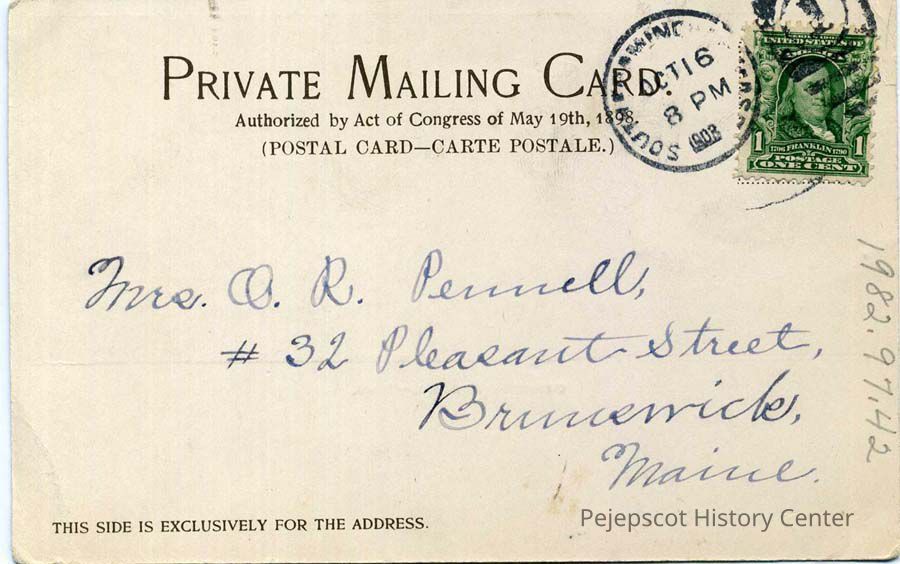 PRIVATE MAILING CARD.
Authorized by Act of Congress of May 19th, 1898.
(POSTAL CARD—CARTE POSTALE.)
SOUTH FRAMINGHAM
OCT 16
8 PM
1903
UNITED STATES OF
1706 FRANKLIN 1790
1 POSTAGE 1
ONE CENT
Mrs. O. R. Pennell,
# 32 Pleasant Street,
Brunswick,
Maine.
1982.97.42
THIS SIDE IS EXCLUSIVELY FOR THE ADDRESS.
Pejepscot History Center